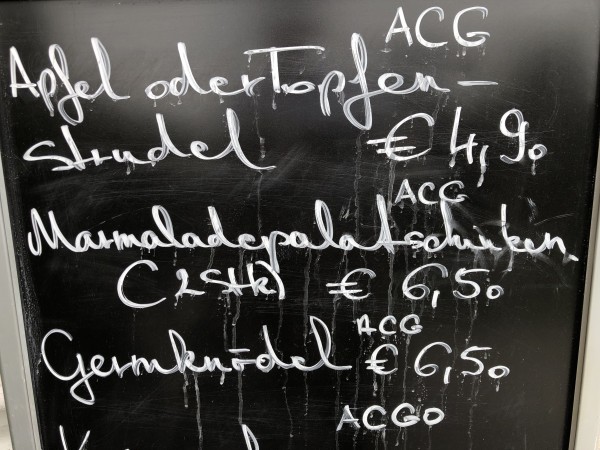 ACG
Apfel oder Topfen-
strudel € 4,90
ACG
Marmaladepalatschinken
(2Stk) € 6,50
ACG
Germknödel € 6,50
ACGO